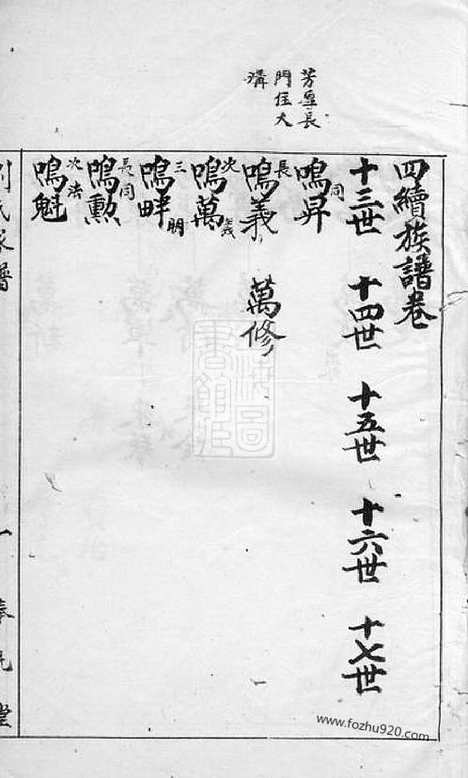 芳厚長
門住大
溝
四續族譜卷
十三世 十四世 十五世 十六世 十七世
同
鳴昇
長
鳴義 萬修
次 義
鳴萬
三 明
鳴畔
長同
鳴勲
次法
鳴魁
劉氏家譜 一
www.fozhu920.com